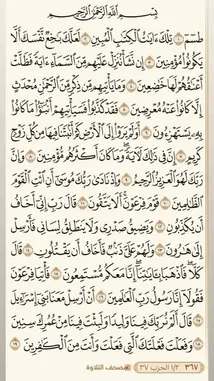 بِسْمِ ٱللَّهِ ٱلرَّحْمَٰنِ ٱلرَّحِيمِ
طسٓمٓ ١ تِلْكَ ءَايَٰتُ ٱلْكِتَٰبِ ٱلْمُبِينِ ٢ لَعَلَّكَ بَٰخِعٌ نَّفْسَكَ أَلَّا
يَكُونُوا۟ مُؤْمِنِينَ ٣ إِن نَّشَأْ نُنَزِّلْ عَلَيْهِم مِّنَ ٱلسَّمَآءِ ءَايَةً فَظَلَّتْ
أَعْنَٰقُهُمْ لَهَا خَٰضِعِينَ ٤ وَمَا يَأْتِيهِم مِّن ذِكْرٍ مِّنَ ٱلرَّحْمَٰنِ مُحْدَثٍ
إِلَّا كَانُوا۟ عَنْهُ مُعْرِضِينَ ٥ فَقَدْ كَذَّبُوا۟ فَسَيَأْتِيهِمْ أَنۢبَٰٓؤُا۟ مَا كَانُوا۟
بِهِۦ يَسْتَهْزِءُونَ ٦ أَوَلَمْ يَرَوْا۟ إِلَى ٱلْأَرْضِ كَمْ أَنۢبَتْنَا فِيهَا مِن كُلِّ زَوْجٍ
كَرِيمٍ ٧ إِنَّ فِى ذَٰلِكَ لَءَايَةً وَمَا كَانَ أَكْثَرُهُم مُّؤْمِنِينَ ٨ وَإِنَّ
رَبَّكَ لَهُوَ ٱلْعَزِيزُ ٱلرَّحِيمُ ٩ وَإِذْ نَادَىٰ رَبُّكَ مُوسَىٰٓ أَنِ ٱئْتِ ٱلْقَوْمَ
ٱلظَّٰلِمِينَ ١٠ قَوْمَ فِرْعَوْنَ أَلَا يَتَّقُونَ ١١ قَالَ رَبِّ إِنِّىٓ أَخَافُ
أَن يُكَذِّبُونِ ١٢ وَيَضِيقُ صَدْرِى وَلَا يَنطَلِقُ لِسَانِى فَأَرْسِلْ
إِلَىٰ هَٰرُونَ ١٣ وَلَهُمْ عَلَىَّ ذَنۢبٌ فَأَخَافُ أَن يَقْتُلُونِ ١٤ قَالَ
كَلَّا فَٱذْهَبَا بِـَٔايَٰتِنَآ إِنَّا مَعَكُم مُّسْتَمِعُونَ ١٥ فَأْتِيَا فِرْعَوْنَ
فَقُولَآ إِنَّا رَسُولُ رَبِّ ٱلْعَٰلَمِينَ ١٦ أَنْ أَرْسِلْ مَعَنَا بَنِىٓ إِسْرَٰٓءِيلَ
١٧ قَالَ أَلَمْ نُرَبِّكَ فِينَا وَلِيدًا وَلَبِثْتَ فِينَا مِنْ عُمُرِكَ سِنِينَ
١٨ وَفَعَلْتَ فَعْلَتَكَ ٱلَّتِى فَعَلْتَ وَأَنتَ مِنَ ٱلْكَٰفِرِينَ ١٩
٣٦٧ ١/٢ الحزب ٣٧ مصحف التلاوة